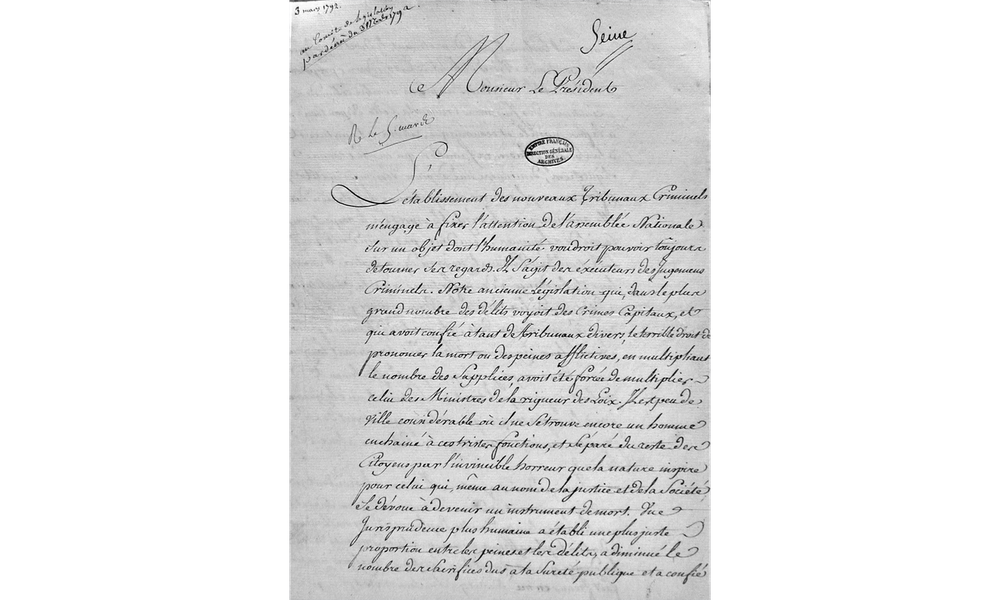 3 mars 1792.
au Comité de législation
par décret du 3 Mars 1792
Seine
Monsieur Le Président
R le 5. mars
EMPIRE FRANÇAIS
DIRECTION GÉNÉRALE
DES
ARCHIVES
L'établissement des nouveaux Tribunaux Criminels
m'engage à fixer l'attention de l'assemblée Nationale
Sur un objet dont l'humanité voudroit pouvoir toujours
detourner ses regards. Il s'agit des éxécuteurs des jugemens
Criminels. Notre ancienne Législation qui, dans le plus
grand nombre des délits voyoit des Crimes Capitaux, et
qui avoit confié à tant de tribunaux divers, le terrible droit de
prononcer la mort ou des peines afflictives, en multipliant
le nombre des Supplices, avoit été forcée de multiplier
celui des Ministres de la rigueur des Loix. Il est peu de
Ville considérable où il ne se trouve encore un homme
enchainé à ces tristes fonctions, et séparé du reste des
Citoyens par l'invincible horreur que la nature inspire
pour celui qui, même au nom de la justice et de la Société
Se dévoue à devenir un instrument de mort. Une
Jurisprudence plus humaine a établi une plus juste
proportion entre les peines et les délits, a diminué le
nombre des Sacrifices dus a la Sureté publique et a confié